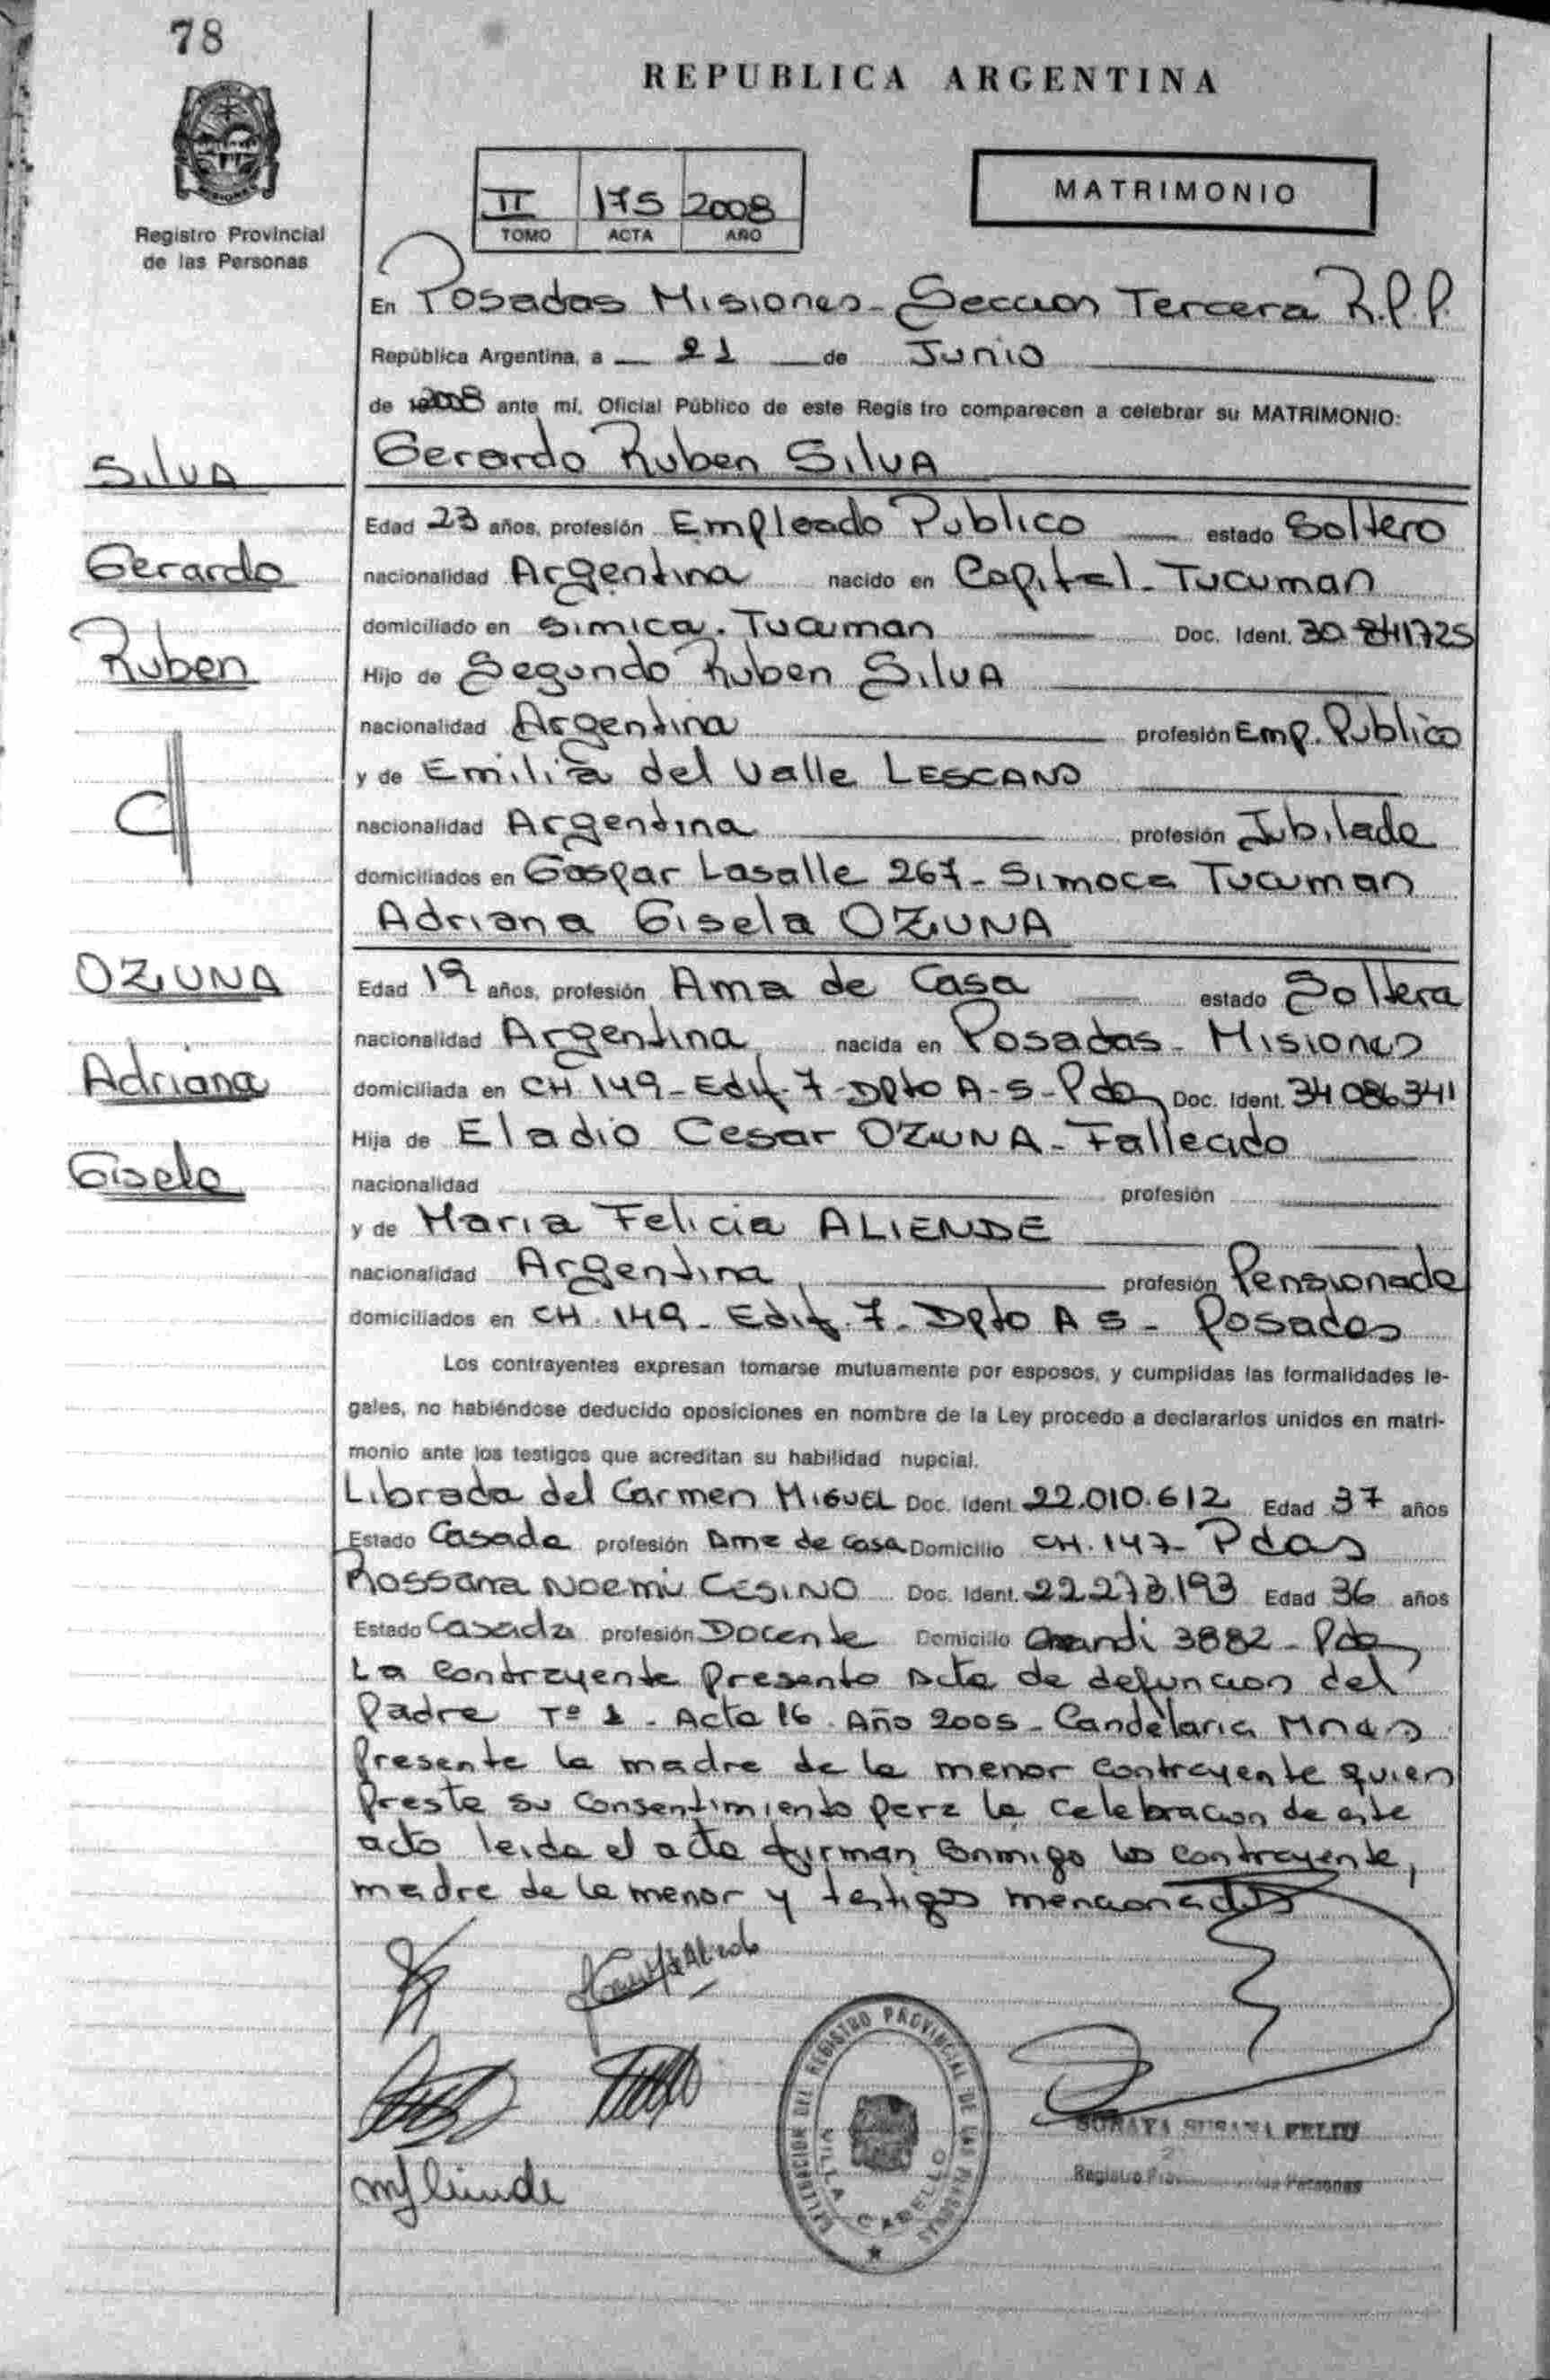 78
REPUBLICA ARGENTINA
II 175 2008
TOMO ACTA AÑO
MATRIMONIO
Registro Provincial
de las Personas
En Posadas Misiones - Seccion Tercera R.P.P.
República Argentina, a 21 de Junio
de 2008 ante mí, Oficial Público de este Regis tro comparecen a celebrar su MATRIMONIO:
SILVA
Gerardo Ruben SILVA
Edad 23 años, profesión Empleado Publico estado Soltero
Gerardo
nacionalidad Argentina nacido en Capital - Tucuman
domiciliado en Simica. Tucuman Doc. Ident. 30.841.725
Ruben
Hijo de Segundo Ruben SILVA
nacionalidad Argentina profesión Emp. Publico
y de Emilia del Valle LESCANO
C/
nacionalidad Argentina profesión Jubilada
domiciliados en Gaspar Lasalle 267 - Simoca Tucuman
Adriana Gisela OZUNA
OZUNA
Edad 19 años, profesión Ama de Casa estado Soltera
nacionalidad Argentina nacida en Posadas - Misiones
Adriana
domiciliada en CH. 149 - Edif. 7 - Dpto A - 5 - Pdas Doc. Ident. 34.086.341
Hija de Eladio Cesar OZUNA - Fallecido
Gisela
nacionalidad profesión
y de Maria Felicia ALIENDE
nacionalidad Argentina profesión Pensionada
domiciliados en CH. 149 - Edif. 7 - Dpto A 5 - Posadas
Los contrayentes expresan tomarse mutuamente por esposos, y cumplidas las formalidades le-
gales, no habiéndose deducido oposiciones en nombre de la Ley procedo a declararlos unidos en matri-
monio ante los testigos que acreditan su habilidad nupcial.
Librada del Carmen MIGUEL Doc. Ident. 22.010.612 Edad 37 años
Estado Casada profesión Ama de casa Domicilio CH. 147 - Pdas
Rossana Noemi CESINO Doc. Ident. 22.273.193 Edad 36 años
Estado Casada profesión Docente Domicilio 3882 - Pdas
La contrayente presento Acta de defuncion del
Padre Tº 1 - Acta 16 - Año 2005 - Candelaria Mnes
Presente la madre de la menor contrayente quien
Preste su consentimiento para la celebracion de este
acto leida el acta firman conmigo los contrayente,
madre de la menor y testigos mencionados
mfliende
DEL REGISTRO PROVINCIAL DE LAS PERSONAS
VILLA CABELLO
SORAYA SUSANA FELIU
Registro de las Personas